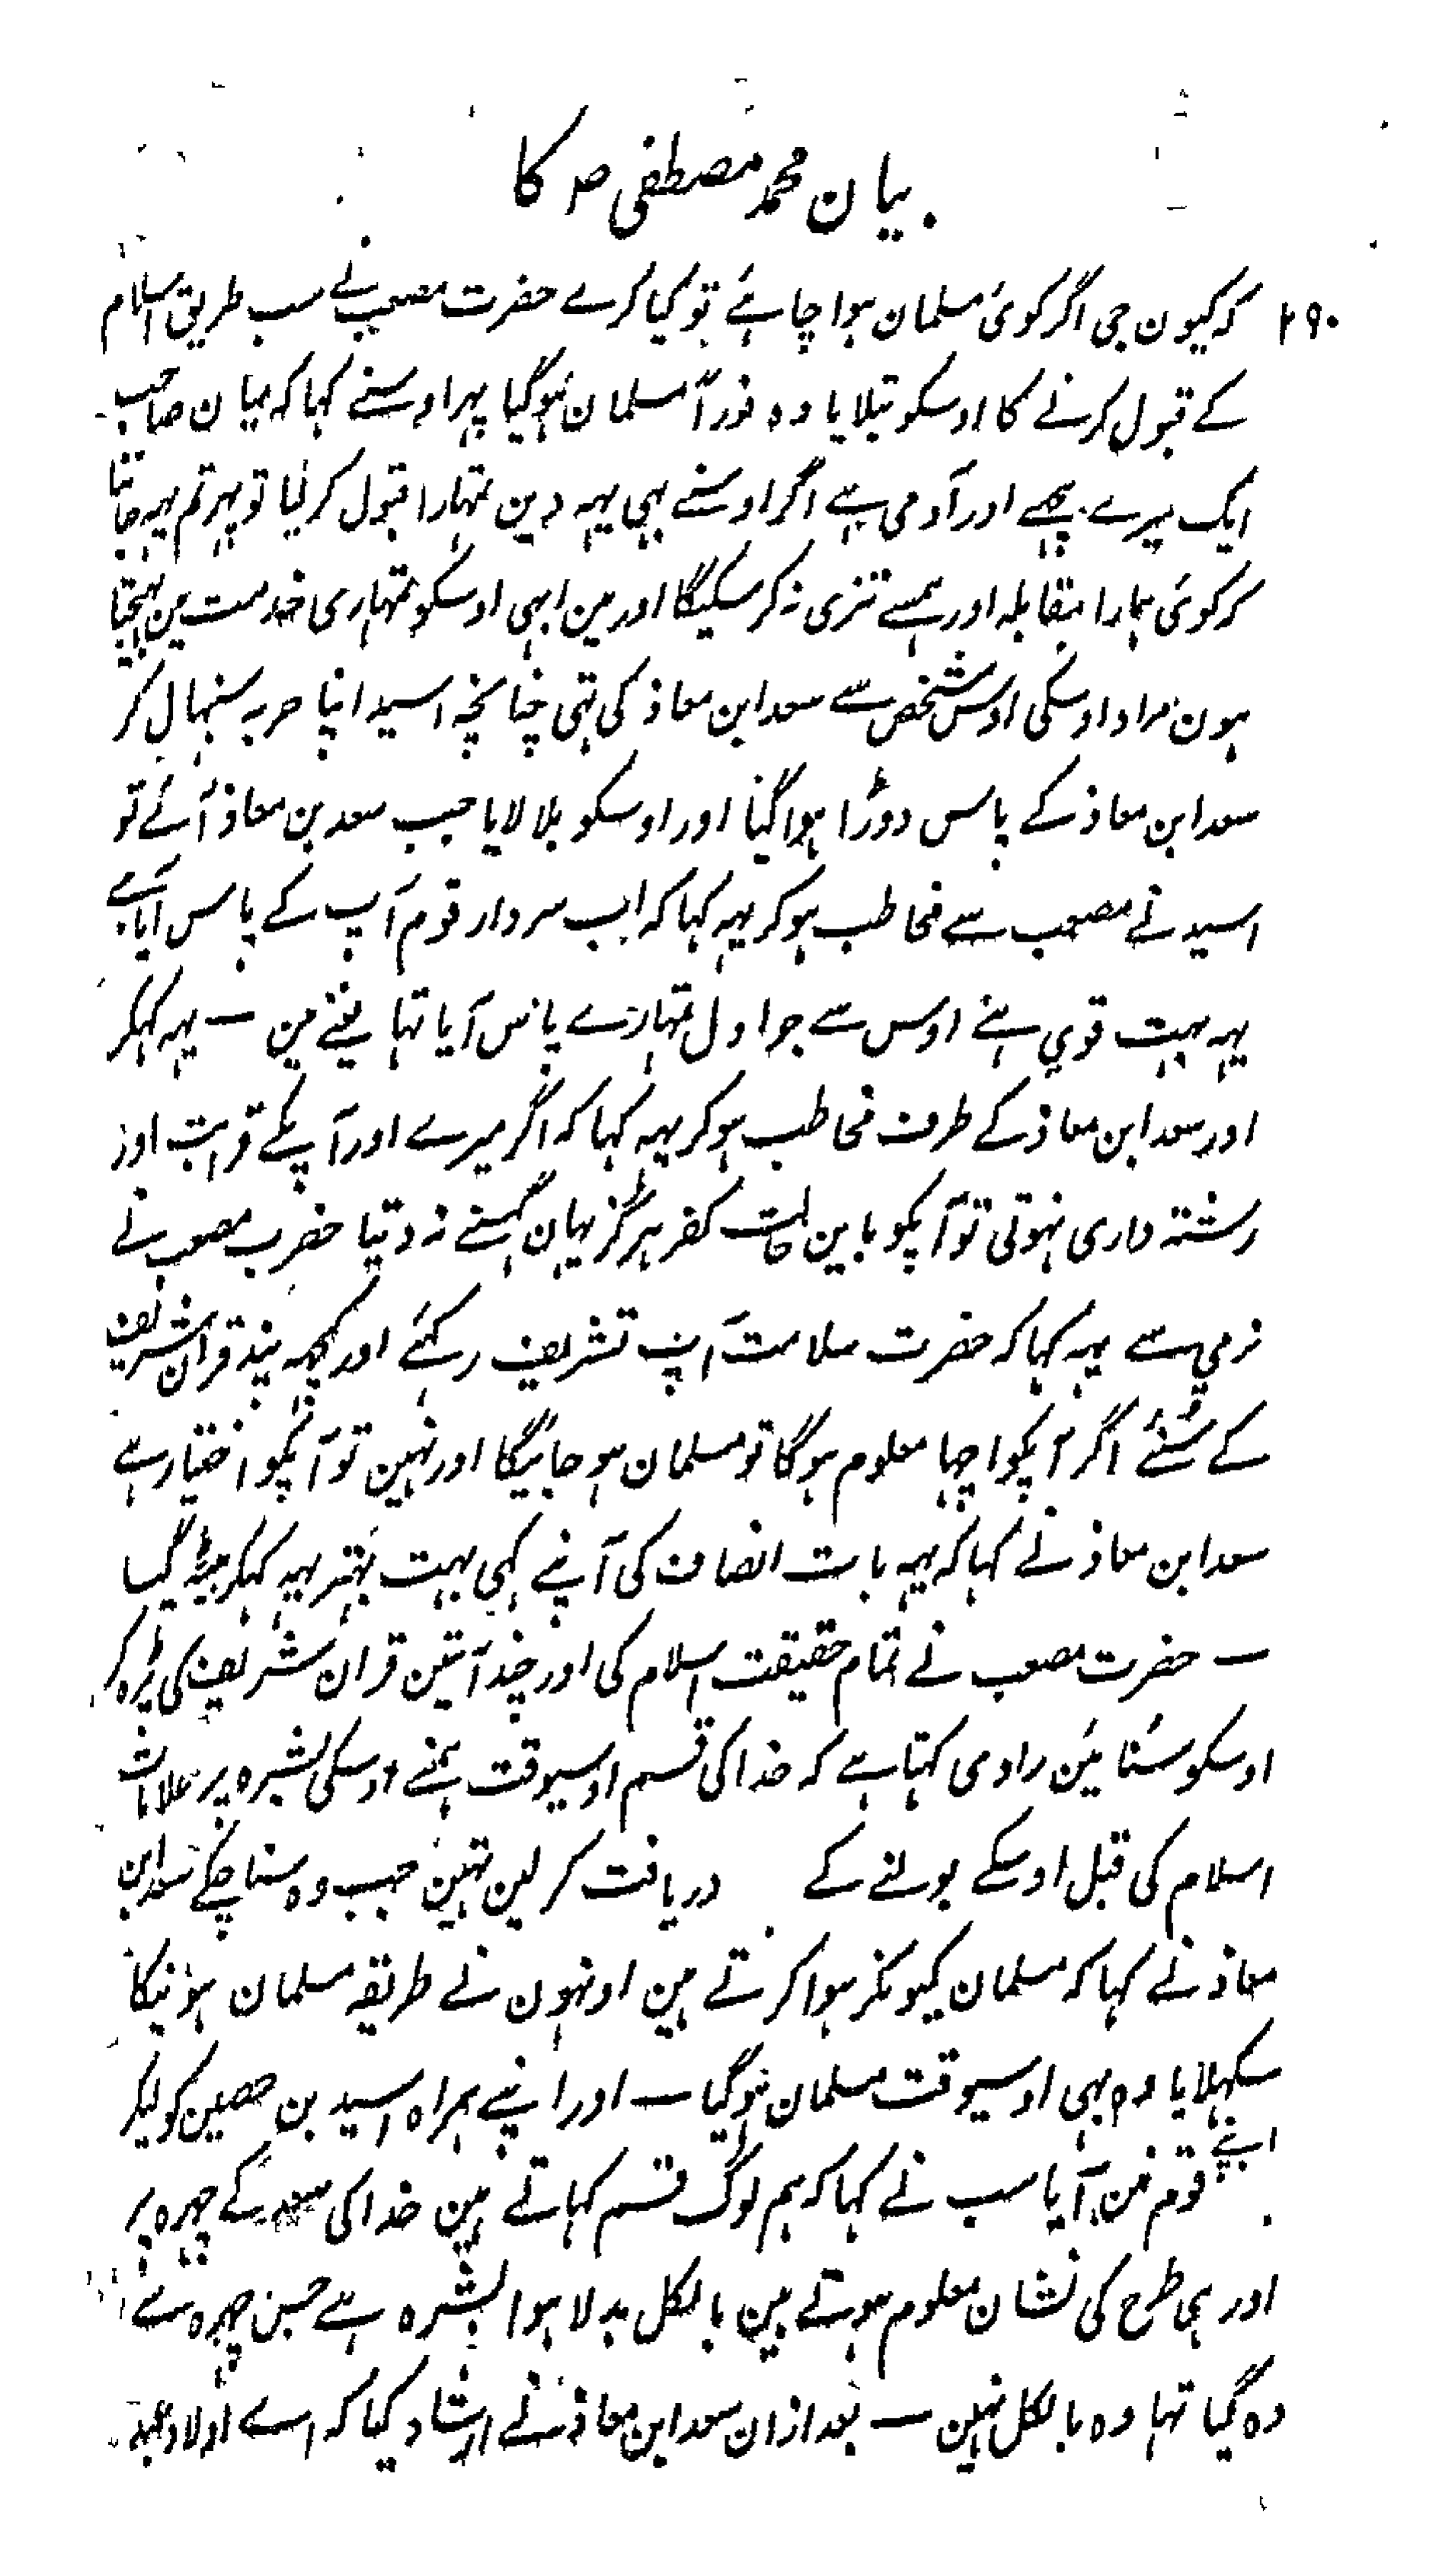 بیان محمد مصطفی ص کا
۲۹۰ کہ کیون جی اگر کوئی مسلمان ہوا چاہئے تو کیا کرے حضرت مصعب نے سب طریق اسلام
کے قبول کرنے کا اوسکو بتلایا وہ فوراً مسلمان ہو گیا پہر اوسنے کہا کہ میان صاحب
ایک میرے پیچھے اور آدمی ہے اگر اوسنے بہی یہہ دین تمہارا قبول کر لیا تو پہر تم یہہ جاننا
کہ کوئی ہمارا مقابلہ اور ہمسے تنزی نہ کر سکیگا اور مین ابہی اوسکو تمہاری خدمت مین بہیجتا
ہون مراد اوسکی اوس شخص سے سعد ابن معاذ کی تہی چنانچہ اسید اپنا حربہ سنبہال کر
سعد ابن معاذ کے پاس دوڑا ہوا گیا اور اوسکو بلا لایا جب سعد بن معاذ آئے تو
اسید نے مصعب سے مخاطب ہو کر یہہ کہا کہ اب سردار قوم آپ کے پاس آیا ہے
یہہ بہت قوی ہے اوس سے جو اول تمہارے پاس آیا تہا یعنے مین ـ یہہ کہکر
اور سعد ابن معاذ کے طرف مخاطب ہو کر یہہ کہا کہ اگر میرے اور آپکے قرابت اور
رشتہ داری نہوتی تو آپکو باین حالت کفر ہرگز یہان گہسنے نہ دیتا حضرت مصعب نے
نرمی سے یہہ کہا کہ حضرت سلامت آپ تشریف رکہئے اور کچہہ پند قران شریف
کے سُنئے اگر آپکو اچہا معلوم ہوگا تو مسلمان ہو جائیگا اور نہین تو آپکو اختیار ہے
سعد ابن معاذ نے کہا کہ یہہ بات انصاف کی آپنے کہی بہت بہتر یہہ کہکر بیٹہ گیا
ـ حضرت مصعب نے تمام حقیقت اسلام کی اور چند آیتین قران شریف کی پڑہ کر
اوسکو سنائین راوی کہتا ہے کہ خدا کی قسم اوسیوقت ہمنے اوسکی بشرہ پر علامات
اسلام کی قبل اوسکے بولنے کے دریافت کر لین تہین جب وہ سنا چکے سعد ابن
معاذ نے کہا کہ مسلمان کیونکر ہوا کرتے ہین اونہون نے طریقہ مسلمان ہونیکا
سکہلایا وہ بہی اوسیوقت مسلمان ہو گیا ـ اور اپنے ہمراہ اسید بن حصین کو لیکر
اپنے قوم مین آیا سب نے کہا کہ ہم لوگ قسم کہاتے ہین خدا کی سعد کے چہرہ پر
اور ہی طرح کی نشان معلوم ہوتے ہین بالکل بدلا ہوا بشرہ ہے جس چہرہ سے
وہ گیا تہا وہ بالکل نہین ـ بعد ازان سعد ابن معاذ نے ارشاد کیا کہ اے اولاد عبد